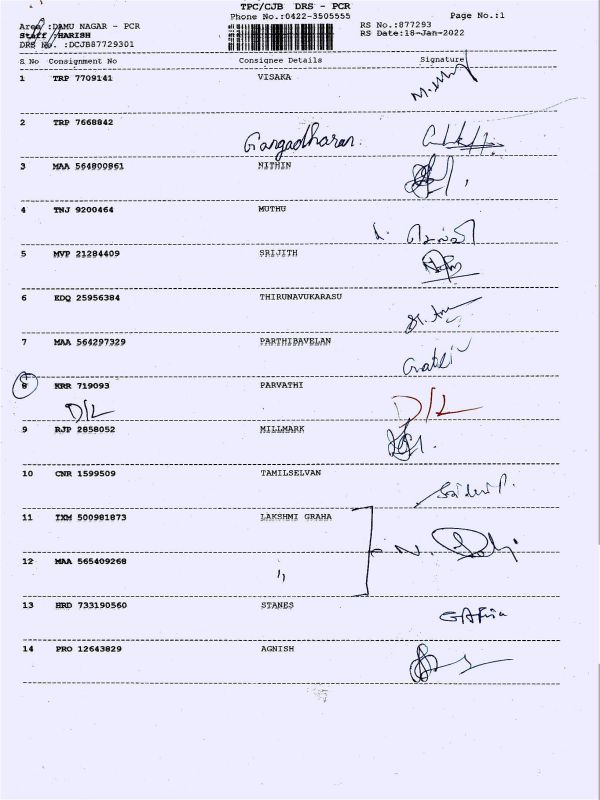 TPC/CJB DRS - PCR
Phone No.:0422-3505555 Page No.:1
Area :DAMU NAGAR - PCR RS No.:877293
Staff :HARISH RS Date:18-Jan-2022
DRS No. :DCJB87729301
S.No Consignment No Consignee Details Signature
1 TRP 7709141 VISAKA
2 TRP 7668842
Gangadharan.
3 MAA 564800861 NITHIN
4 TNJ 9200464 MUTHU
5 MVP 21284409 SRIJITH
6 EDQ 25956384 THIRUNAVUKARASU
7 MAA 564297329 PARTHIBAVELAN
8 KRR 719093 PARVATHI
D/L D/L
9 RJP 2858052 MILLMARK
10 CNR 1599509 TAMILSELVAN
11 IXM 500981873 LAKSHMI GRAHA
12 MAA 565409268
13 HRD 733190560 STANES
14 PRO 12643829 AGNISH